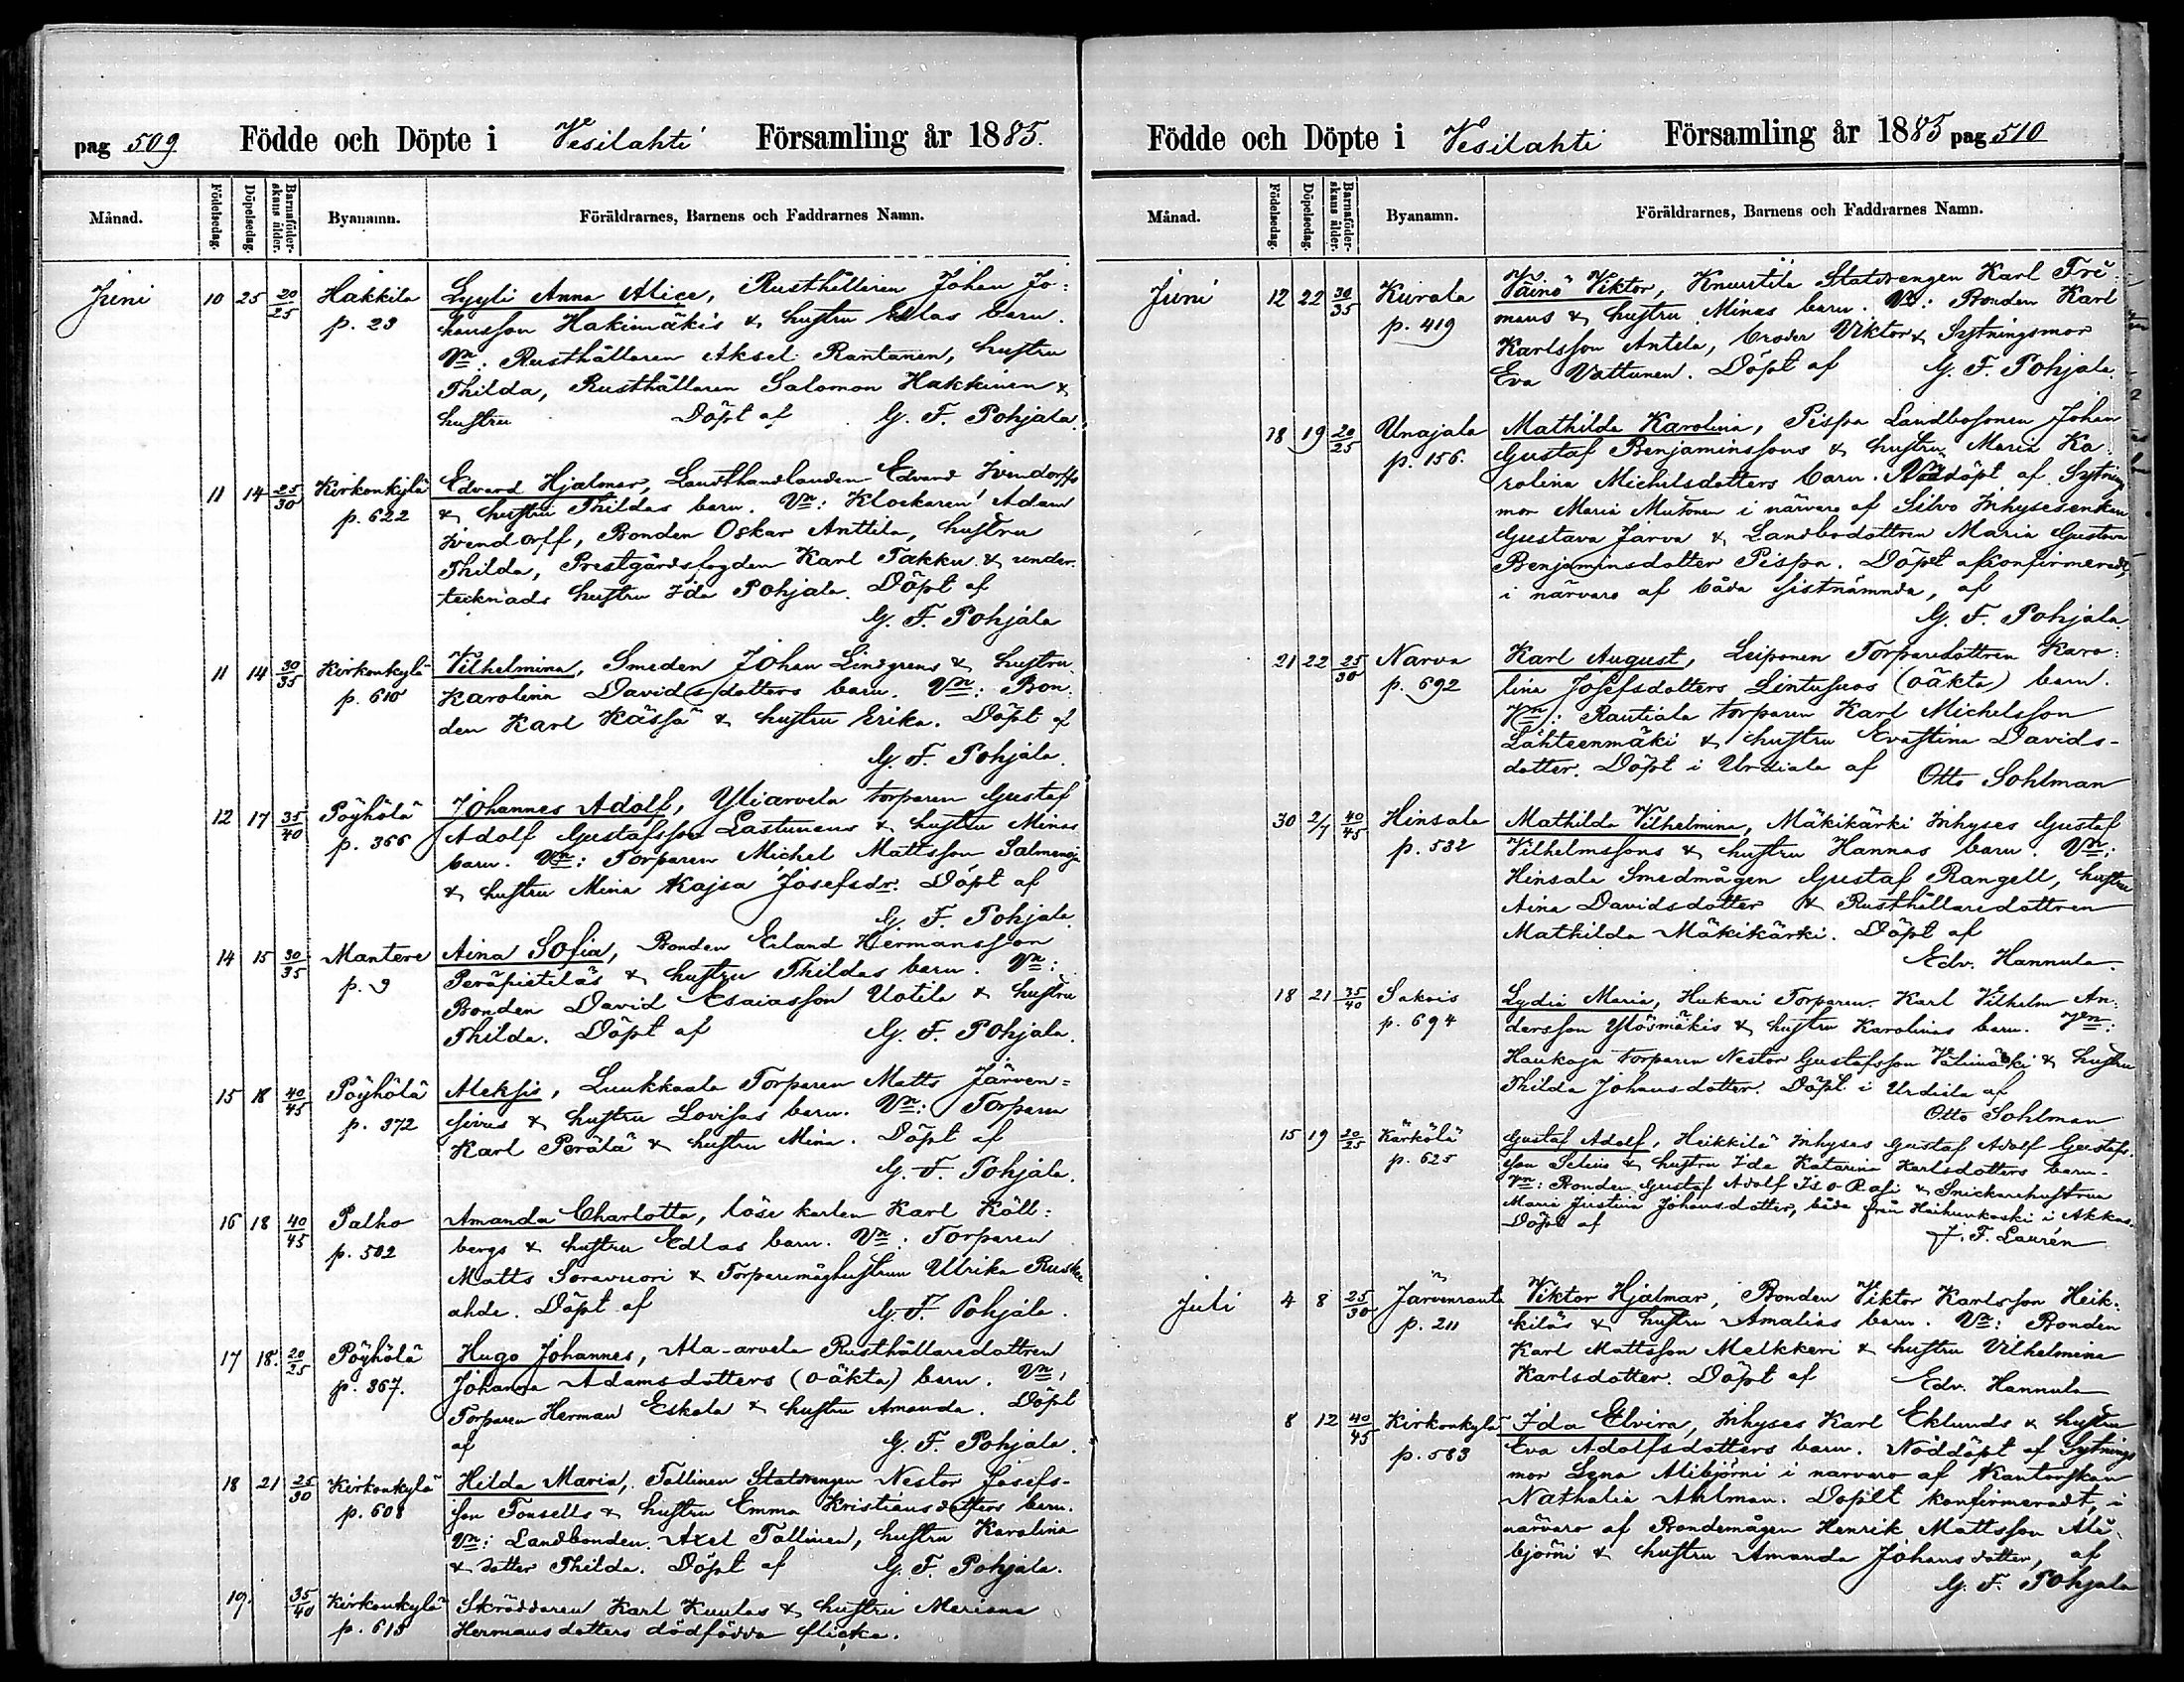 pag 509 Födde och Döpte i Vesilahti Församling år 1885.
Månad. Födelsedag. Döpelsedag. Barnaföderskans ålder. Byanamn. Föräldrarnes, Barnens och Faddrarnes Namn.
Juni 10 25 20/25 Hakkila Lyyli Anna Alice, Rusthållaren Johan Jo:
p. 23 hansson Hakimäki's & hustru Edlas barn.
Vn: Rusthållaren Aksel Rantanen, hustru
Thilda, Rusthållaren Salomon Hakkinen &
hustru Döpt af G. F. Pohjala.
11 14 25/30 Kirkonkylä Edvard Hjalmar, Landthandlanden Edvard Ivendorffs
p. 622 & hustru Thildas barn. Vn: Klockaren Adam
Ivendorff, Bonden Oskar Anttila, hustru
Thilda, Prestgårdsfogden Karl Takku & under-
tecknads hustru Ida Pohjala. Döpt af
G. F. Pohjala
11 14 30/35 Kirkonkylä Vilhelmina, Smeden Johan Lindgrens & hustru
p. 610 Karolina Davidsdotters barn. Vn: Bon-
den Karl Kässä & hustru Erika. Döpt af
G. F. Pohjala.
12 17 35/40 Pöyhölä Johannes Adolf, Yliarvela torparen Gustaf
p. 366 Adolf Gustafsson Lastunens & hustru Minas
barn. Vn: Torparen Michel Mattsson Salmenoja
& hustru Mina Kajsa Josefsdr. Döpt af
G. F. Pohjala.
14 15 30/35 Mantere Aina Sofia, Bonden Erland Hermansson
p. 9 Peräpietiläs & hustru Thildas barn. Vn:
Bonden David Esaiasson Uotila & hustru
Thilda. Döpt af G. F. Pohjala.
15 18 40/45 Pöyhölä Aleksis, Luukkaala Torparen Matts Järven=
p. 372 sivus & hustru Lovisas barn. Vn: Torparen
Karl Perälä & hustru Mina. Döpt af
G. F. Pohjala.
16 18 40/45 Palho Amanda Charlotta, löse karlen Karl Köll:
p. 502 bergs & hustru Edlas barn. Vn: Torparen
Matts Soravuori & Torparemåghustrun Ulrika Ruske
ahde. Döpt af G. F. Pohjala.
17 18. 20/25 Pöyhölä Hugo Johannes, Ala-arvela Rusthållaredottren
p. 367. Johanna Adamsdotters (oäkta) barn. Vn:
Torparen Herman Eskola & hustru Amanda. Döpt
af G. F. Pohjala.
18 21 25/30 Kirkonkylä Hilda Maria, Tallinen Statdrengen Nestor Josefs-
p. 608 son Tonsells & hustru Emma Kristiansdotters barn.
Vn: Landbonden Axel Tallinen, hustru Karolina
& dotter Thilda. Döpt af G. F. Pohjala.
19. 35/40 Kirkonkylä Skräddaren Karl Kuulas & hustru Meriana
p. 615 Hermansdotters dödfödda flicka.
Födde och Döpte i Vesilahti Församling år 1885 pag 510
Månad. Födelsedag. Döpelsedag. Barnaföderskans ålder. Byanamn. Föräldrarnes, Barnens och Faddrarnes Namn.
Juni 12 22 30/35 Kurala Väinö Viktor, Knuutila Statdrengen Karl Fri-
p. 419 mans & hustru Minas barn. Vn: Bonden Karl
Karlsson Antela, broder Viktor & Sytningsmor
Eva Vattunen. Döpt af G. F. Pohjala.
18 19 20/25 Unajala Mathilda Karolina, Pispa Landbosonen Johan
p. 156. Gustaf Benjaminssons & hustru Maria Ka-
rolina Michelsdotters barn. Nöddöpt af Sytnings
mor Maria Mutonen i närvaro af Silvo Inhysesenkan
Gustava Järva & Landbodottren Maria Gustava
Benjaminsdotter Pispa. Döpet afkonfirmeradt,
i närvaro af båda sistnämnda, af
G. F. Pohjala.
21 22 25/30 Narva Karl August, Leiponen Torparedottren Karo:
p. 692 lina Josefsdotters Lintusuos (oäkta) barn.
Vn: Rautiala torparen Karl Michelsson
Lähteenmäki & hustru Evastina Davids-
dotter. Döpt i Urdiala af Otto Sohlman
30 2/7 40/45 Hinsala Mathilda Vilhelmina, Mäkikärki Inhyses Gustaf
p. 532 Vilhelmssons & hustru Hannas barn. Vn:
Hinsala Smedmågen Gustaf Rangell, hustru
Aina Davidsdotter & Rusthållaredottren
Mathilda Mäkikärki. Döpt af
Edv. Hannula.
18 21 35/40 Sakois Lydia Maria, Hukari Torparen Karl Vilhelm An-
p. 694 dersson Ylösmäkis & hustru Karolinas barn. Vn:
Haukoja torparen Nestor Gustafsson Välimäki & hustru
Thilda Johansdotter. Döpt i Urdiala af
Otto Sohlman
15 19 20/25 Kärkölä Gustaf Adolf, Heikkilä Inhyses Gustaf Adolf Gustafs-
p. 625 son Selins & hustru Ida Katarina Karlsdotters barn-
Vn: Bonden Gustaf Adolf Iso-Rasi & Snickarehustrun
Maria Justina Johansdotter, båda från Haihunkoski i Akkas.
Döpt af J. F. Laurén
Juli 4 8 25/30 Järvenranta Viktor Hjalmar, Bonden Viktor Karlsson Heik-
p. 211 kiläs & hustru Amalias barn. Vn: Bonden
Karl Mattsson Melkkeri & hustru Vilhelmina
Karlsdotter. Döpt af Edv. Hannula
8 12 40/45 Kirkonkylä Ida Elvira, Inhyses Karl Eklunds & hustru
p. 583 Eva Adolfsdotters barn. Nöddöpt af Sytnings
mor Lena Alibjörni i närvaro af Kantorskan
Nathalia Ahlman. Döpet konfirmeradt, i
närvaro af Bondemågen Henrik Mattsson Ali-
björni & hustru Amanda Johansdotter, af
G. F. Pohjala